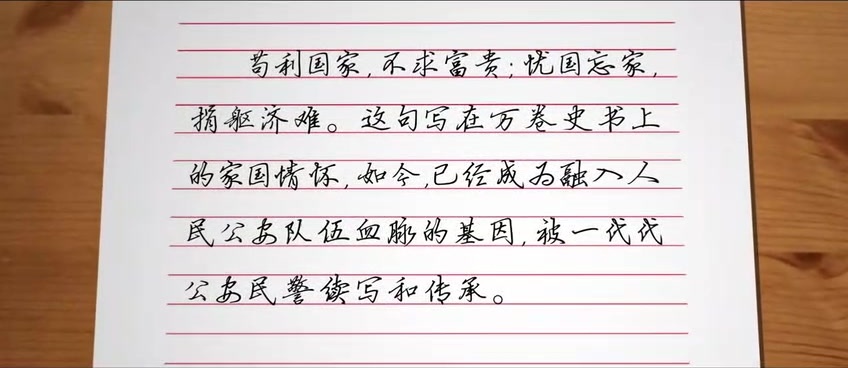 苟利国家,不求富贵;忧国忘家,
捐躯济难。这句写在万卷史书上
的家国情怀,如今,已经成为融入人
民公安队伍血脉的基因,被一代代
公安民警续写和传承。